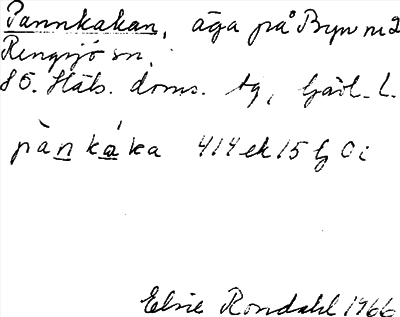 Pannkakan, äga på Byn nr 2
Rengsjö sn.
SÖ. Häls. doms. tg, Gävl. L.
pànkáka 414 ek 15 G Öi
Elsie Rondahl 1966